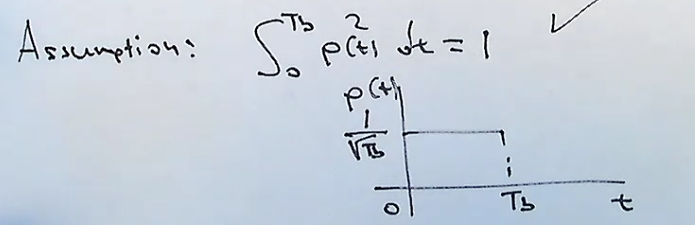 Assumption: ∫₀^Tb p²(t) dt = 1 ✓
p(t)
1/√Tb
0 Tb t